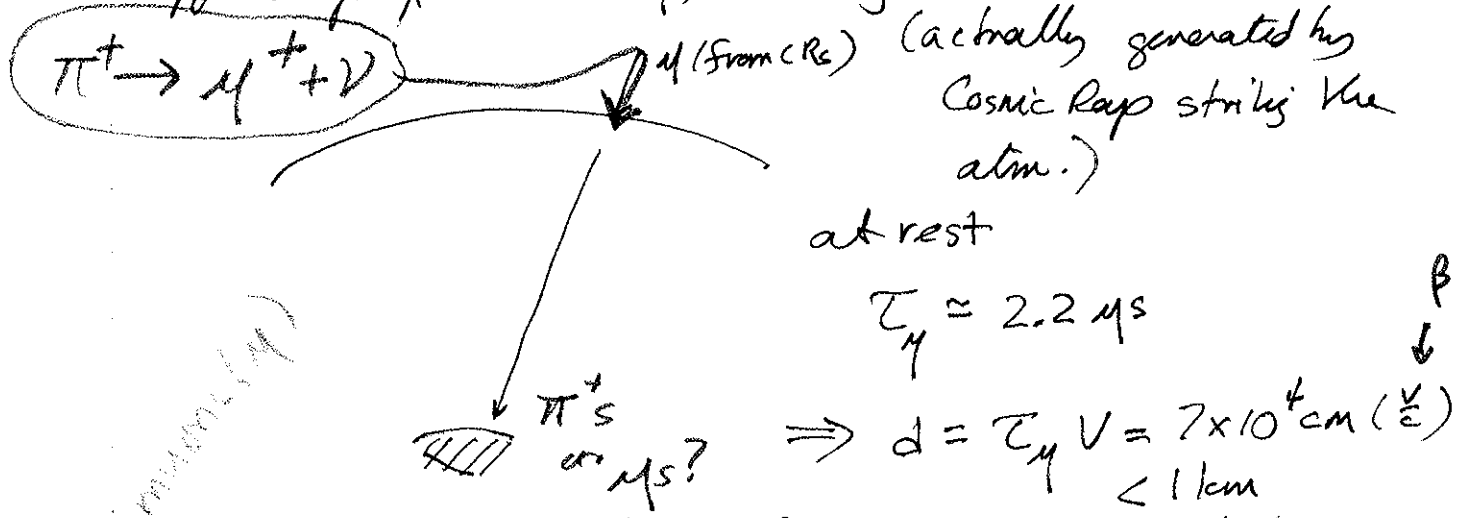 π⁺ → μ⁺ + ν
μ (from CRs) (actually generated by
Cosmic Rays striking the
atm.)
at rest
τ_μ ≃ 2.2 μs
β
↓
π⁺s
or μs?
⇒ d = τ_μ V = 7x10⁴ cm (v/c)
< 1 km
muons (μ)